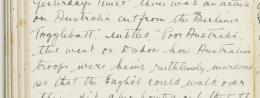 yesterdays Times there was an article
on Australia cut from the Berliner
Togglebatt entitled "Poor Australia,
this went on to show how Australian
troops were being ruthlessly murdered
so that the English could walk over